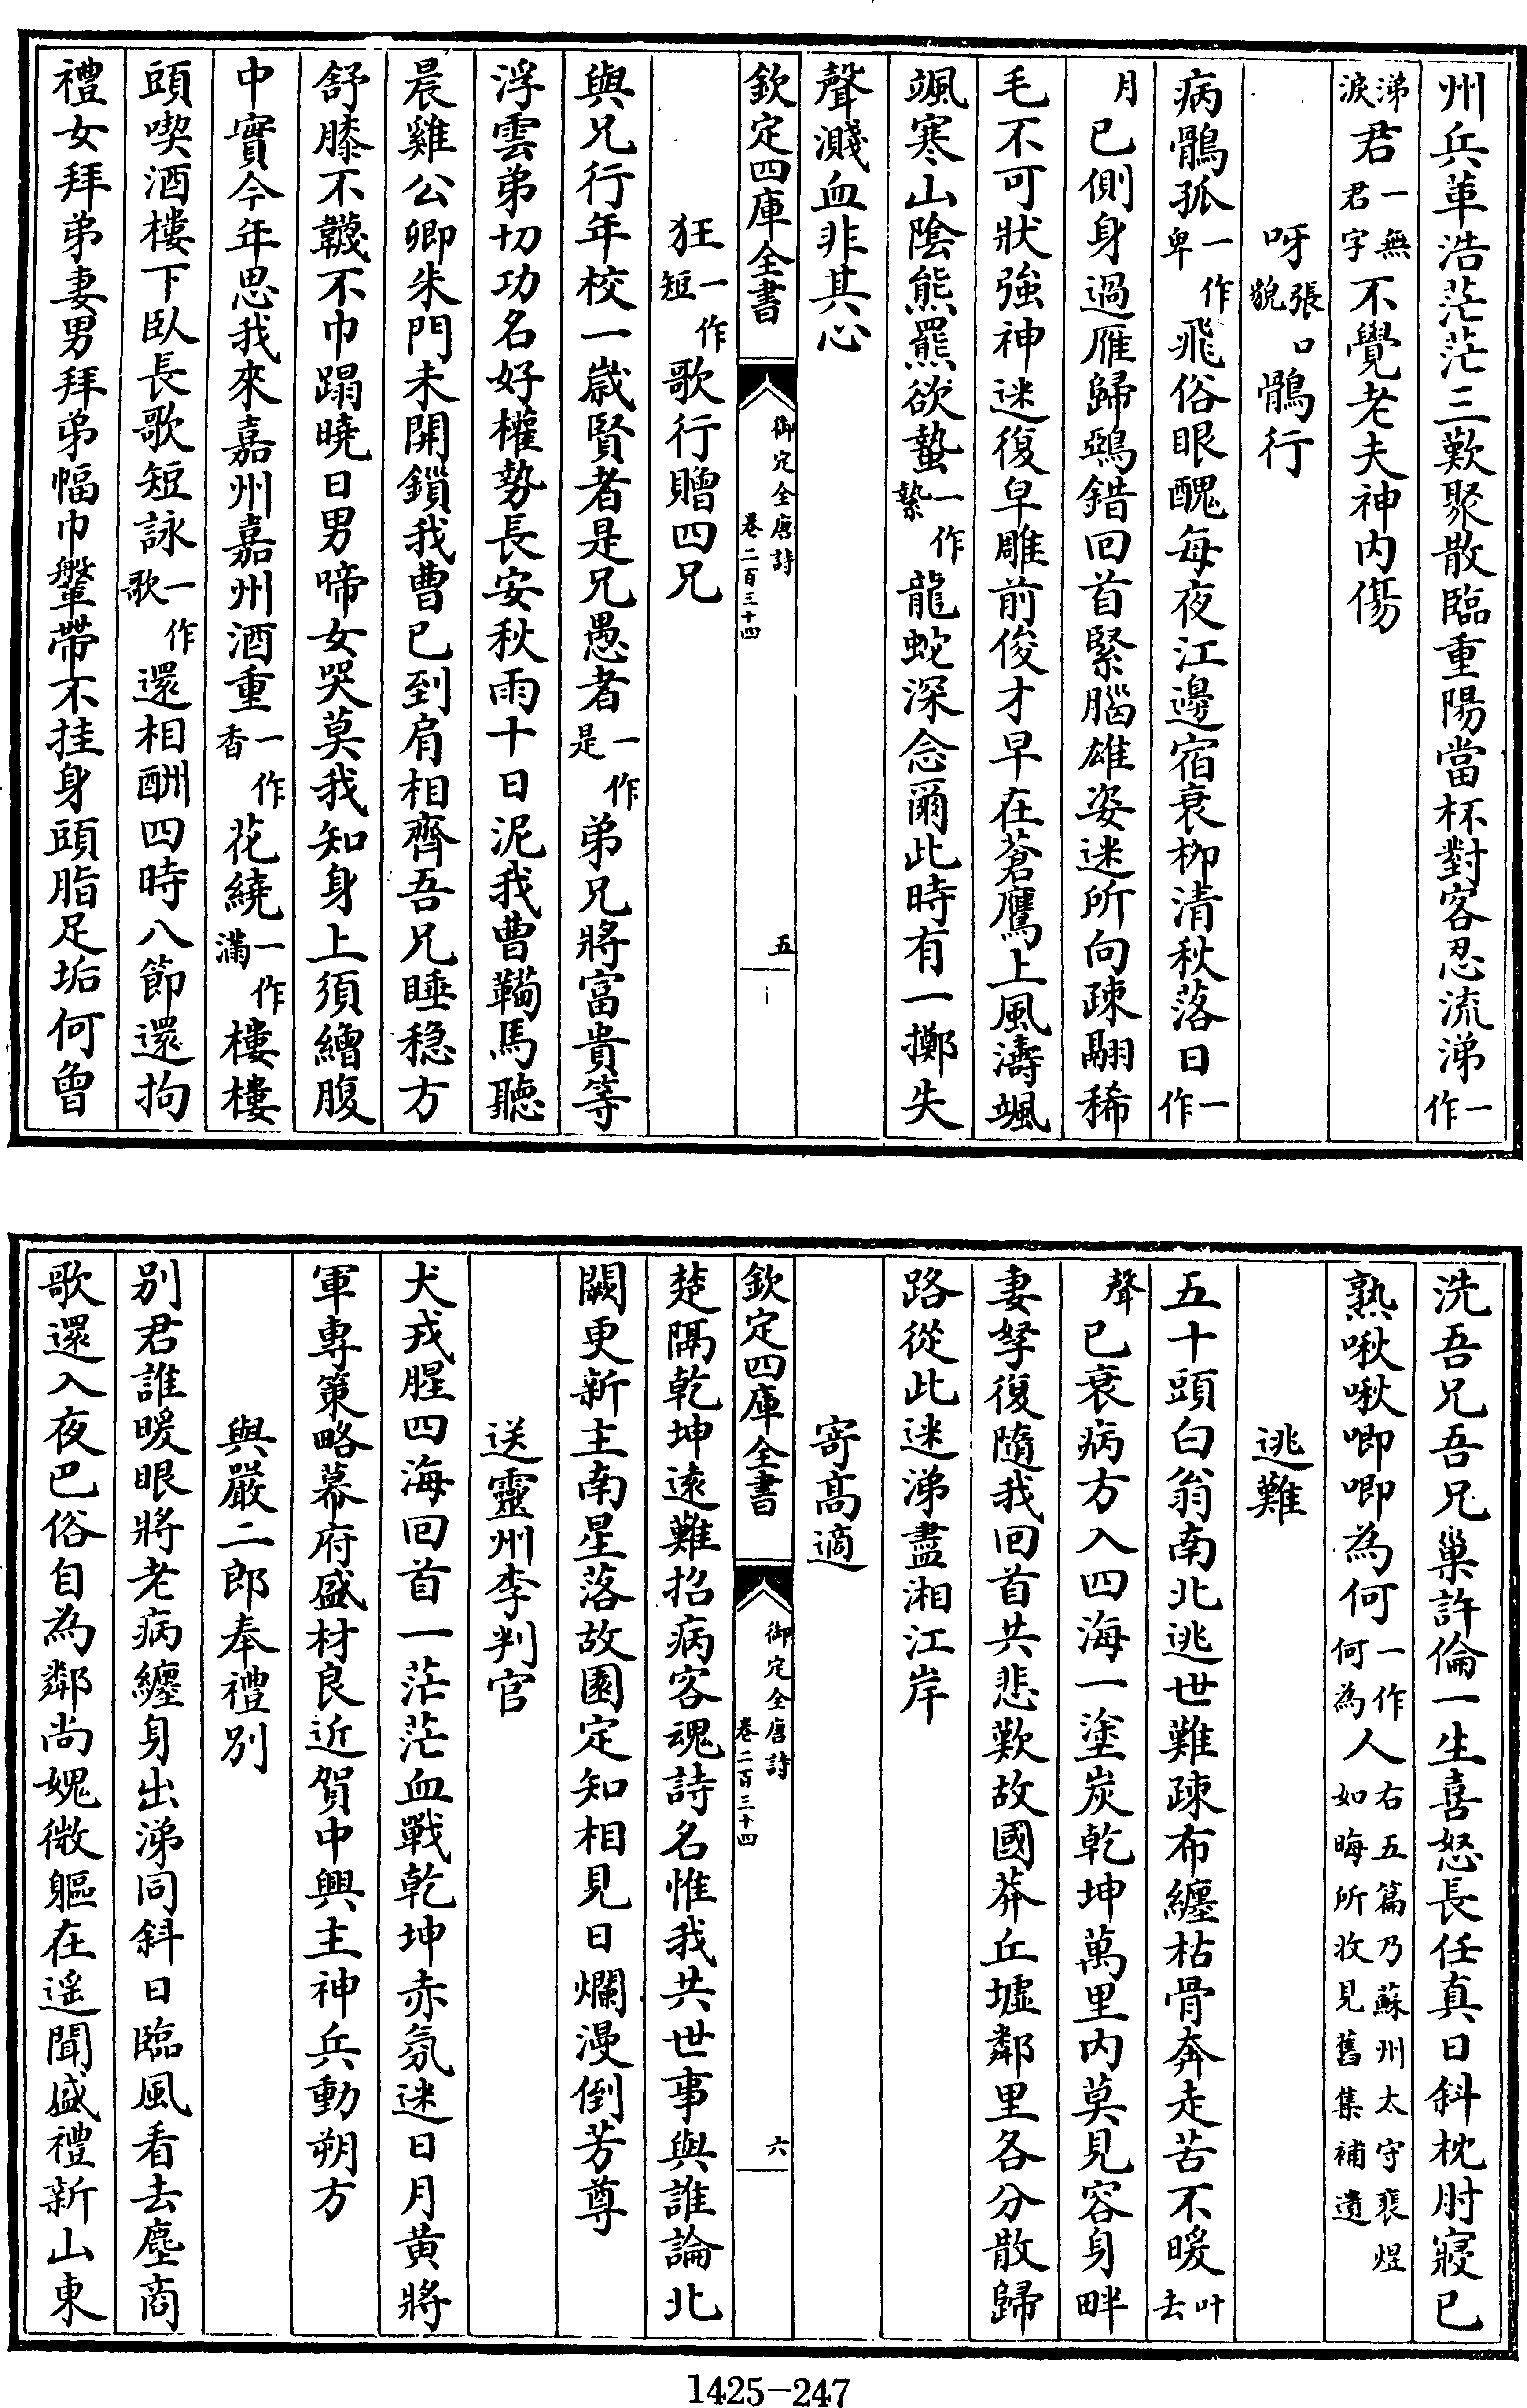 州兵革浩茫茫三歎聚散臨重陽當杯對客忍流涕一作
涕淚君一無君字不覺老夫神內傷
呀張口貌鶻行
病鶻孤一作卑飛俗眼醜每夜江邊宿衰栁清秋落日一作
月已側身過雁歸鵶錯回首緊腦雄姿迷所向疎翮稀
毛不可狀強神迷復皁雕前俊才早在蒼鷹上風濤颯
颯寒山陰熊羆欲蟄一作縶龍蛇深念爾此時有一擲失
聲濺血非其心
欽定四庫全書
御定全唐詩
卷二百三十四
五
狂一作短歌行贈四兄
與兄行年校一歲賢者是兄愚者一作是弟兄將富貴等
浮雲弟切功名好權勢長安秋雨十日泥我曹鞴馬聽
晨雞公卿朱門未開鎻我曹已到肩相齊吾兄睡穏方
舒膝不韈不巾蹋曉日男啼女哭莫我知身上須繒腹
中實今年思我來嘉州嘉州酒重一作香花繞一作滿樓樓
頭喫酒樓下臥長歌短詠一作歌還相酬四時八節還拘
禮女拜弟妻男拜弟幅巾鞶帶不挂身頭脂足垢何曾
洗吾兄吾兄巢許倫一生喜怒長任真日斜枕肘寢已
熟啾啾唧唧為何一作何為人右五篇乃蘇州太守裴煜如晦所收見舊集補遺
逃難
五十頭白翁南北逃世難疎布纏枯骨奔走苦不暖叶去
聲已衰病方入四海一塗炭乾坤萬里內莫見容身畔
妻孥復隨我回首共悲歎故國莽丘墟鄰里各分散歸
路從此迷涕盡湘江岸
寄髙適
欽定四庫全書
御定全唐詩
卷二百三十四
六
楚隔乾坤遠難招病客魂詩名惟我共世事與誰論北
闕更新主南星落故園定知相見日爛漫倒芳尊
送靈州李判官
犬戎腥四海回首一茫茫血戰乾坤赤氛迷日月黃將
軍專策略幕府盛材良近賀中興主神兵動朔方
與嚴二郎奉禮別
別君誰暖眼將老病纏身出涕同斜日臨風看去塵商
歌還入夜巴俗自為鄰尚媿微軀在遥聞盛禮新山東
1425—247